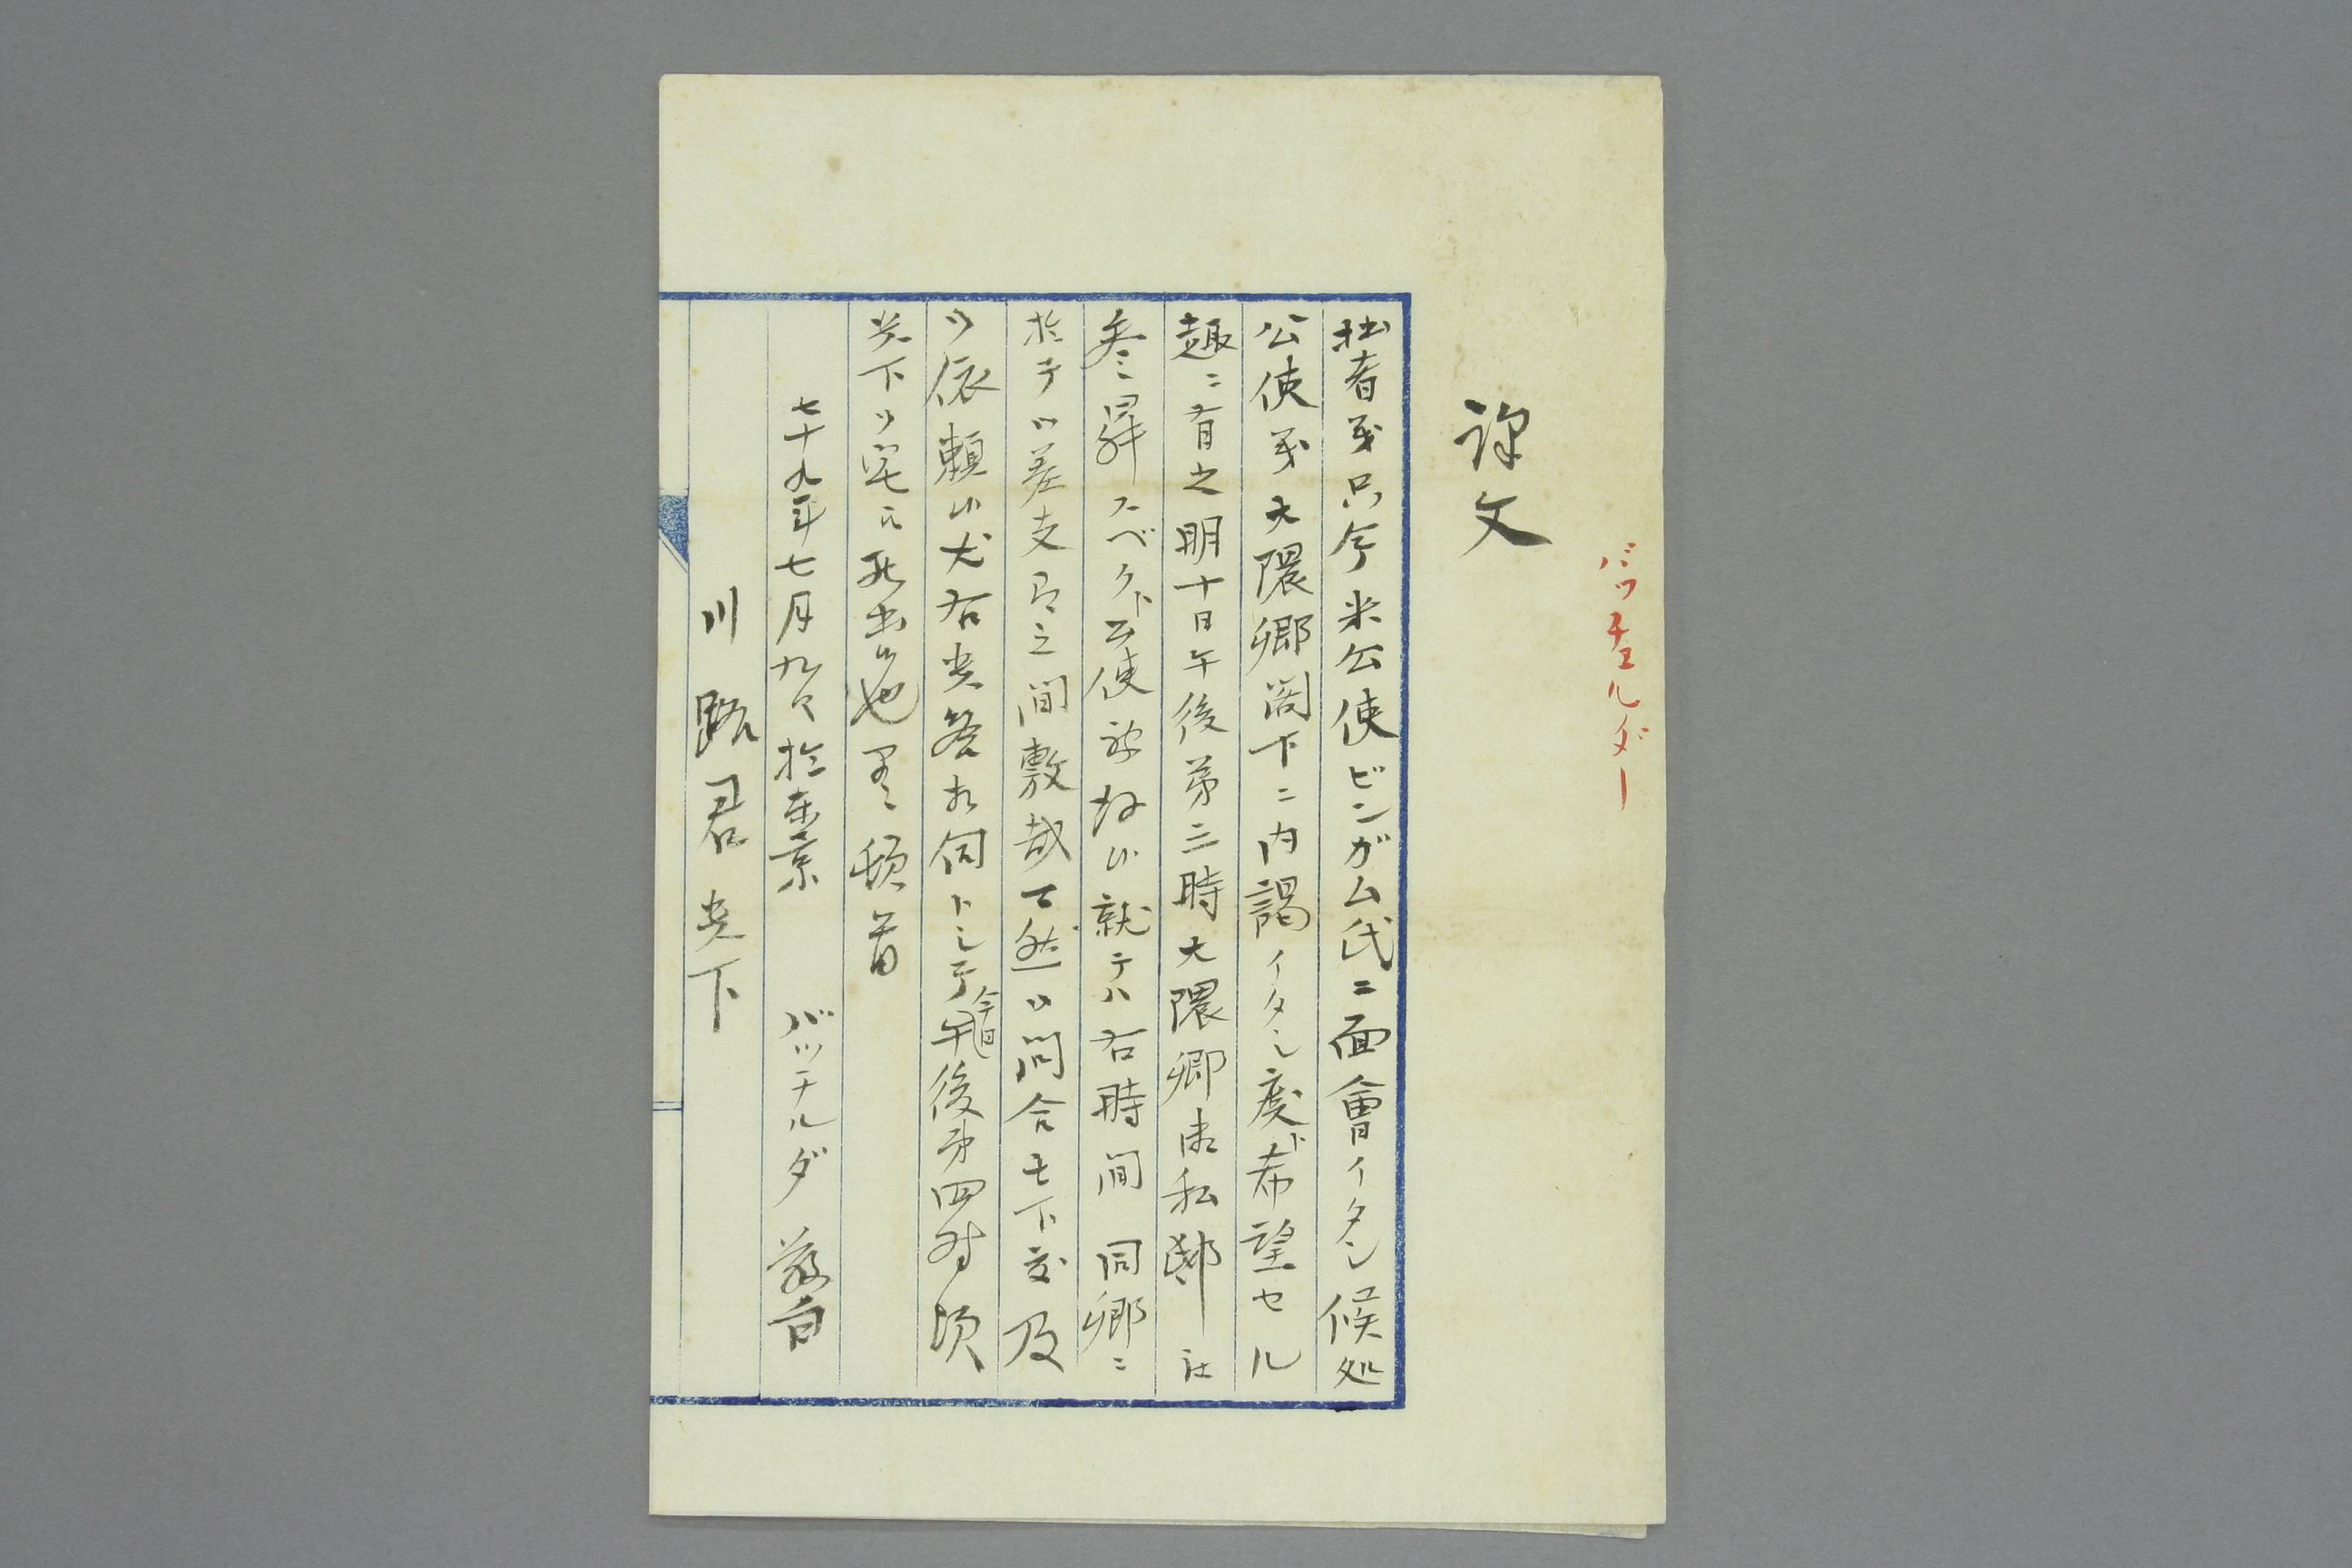 バッチェルダー
訳文
拙者義只今米公使ビンガム氏ニ面會イタシ候処
公使義大隈卿閣下ニ内謁イタシ度ト希望セル
趣ニ有之明十日午後第三時大隈卿御私邸江
参上スベクト公使被存候就テハ右時間同卿ニ
於テ御差支有之間敷哉否御問合セ下度及
御依頼候尤右貴答相伺トシテ今日午後第四時頃
貴下御宅江罷出候也 頓首
七十九年七月九日 於東京 バッチルダ 敬白
川路君貴下